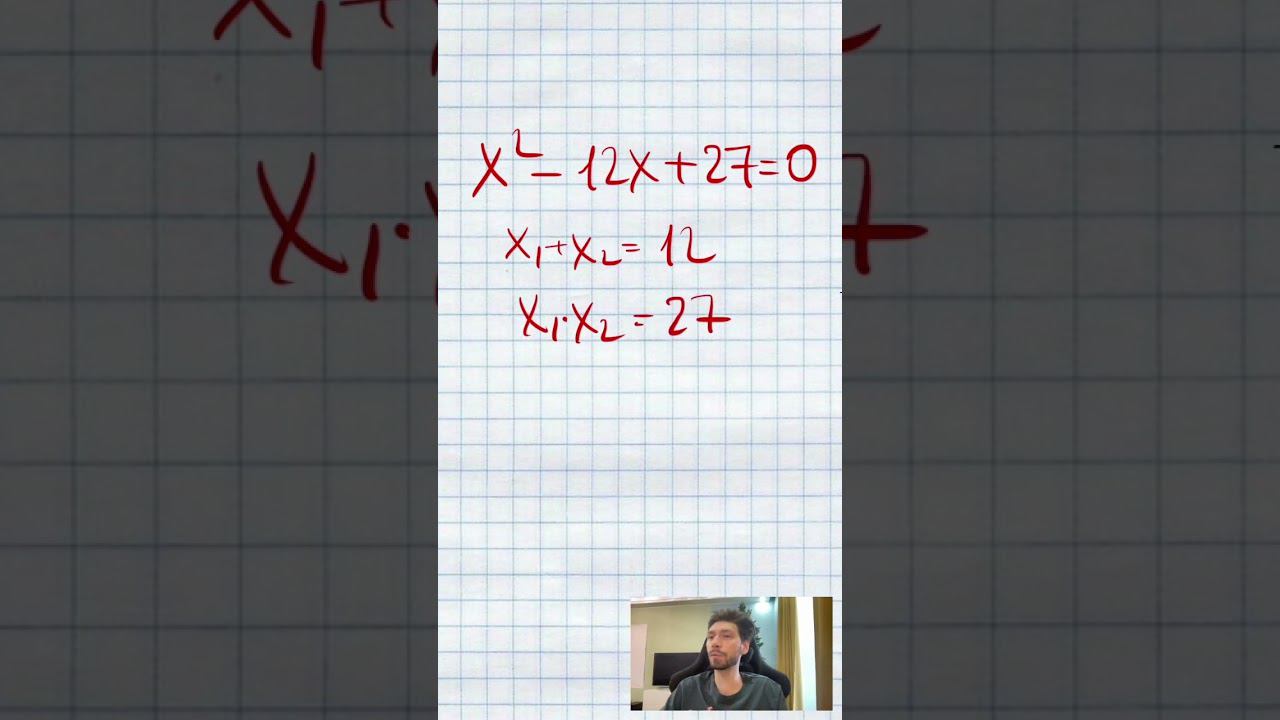 x² - 12x + 27 = 0
x₁ + x₂ = 12
x₁ · x₂ = 27